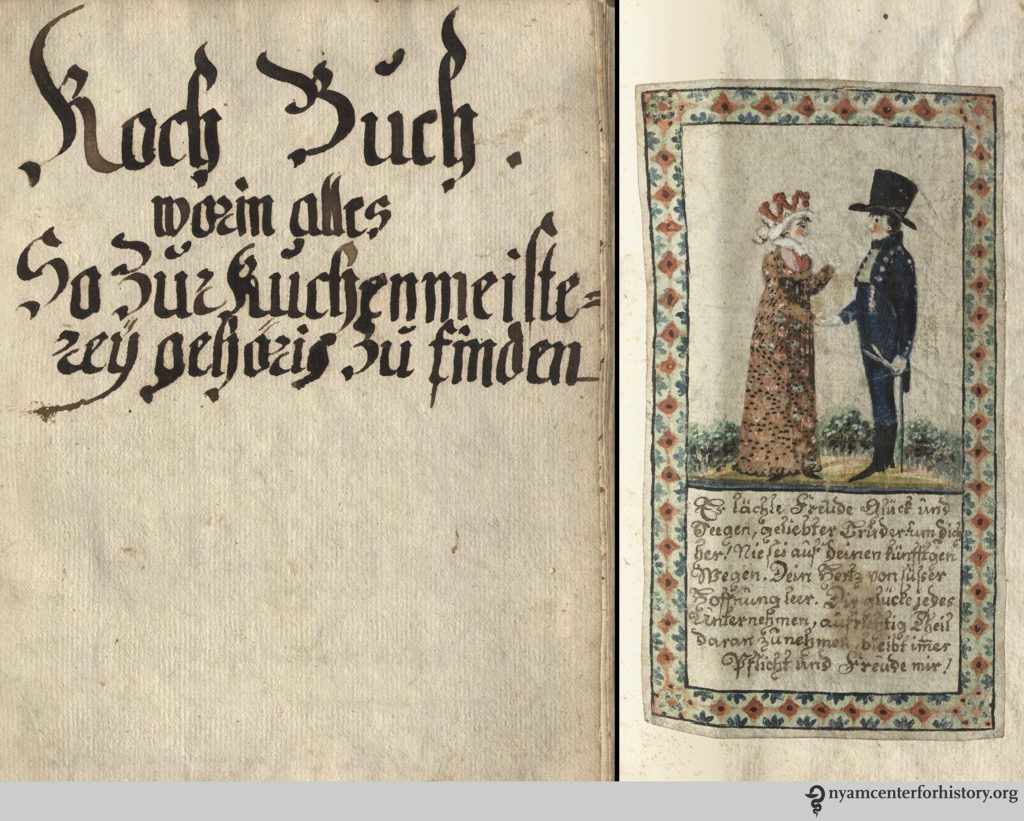 Koch Buch.
worin alles
So zur kuchenmeiste=
reÿ gehöris zu finden
Es lächle Freude Glück und
Seegen, geliebter Bruder um dich
her! Nie sei auf deinen künfftgen
Wegen. Dein Hertz von süsser
Hoffnung leer. Dir glücke jedes
Unternehmen, aufrichtig Theil
daran zunehmen, bleibt im̅er
Pflicht und Freude mir!
nyamcenterforhistory.org